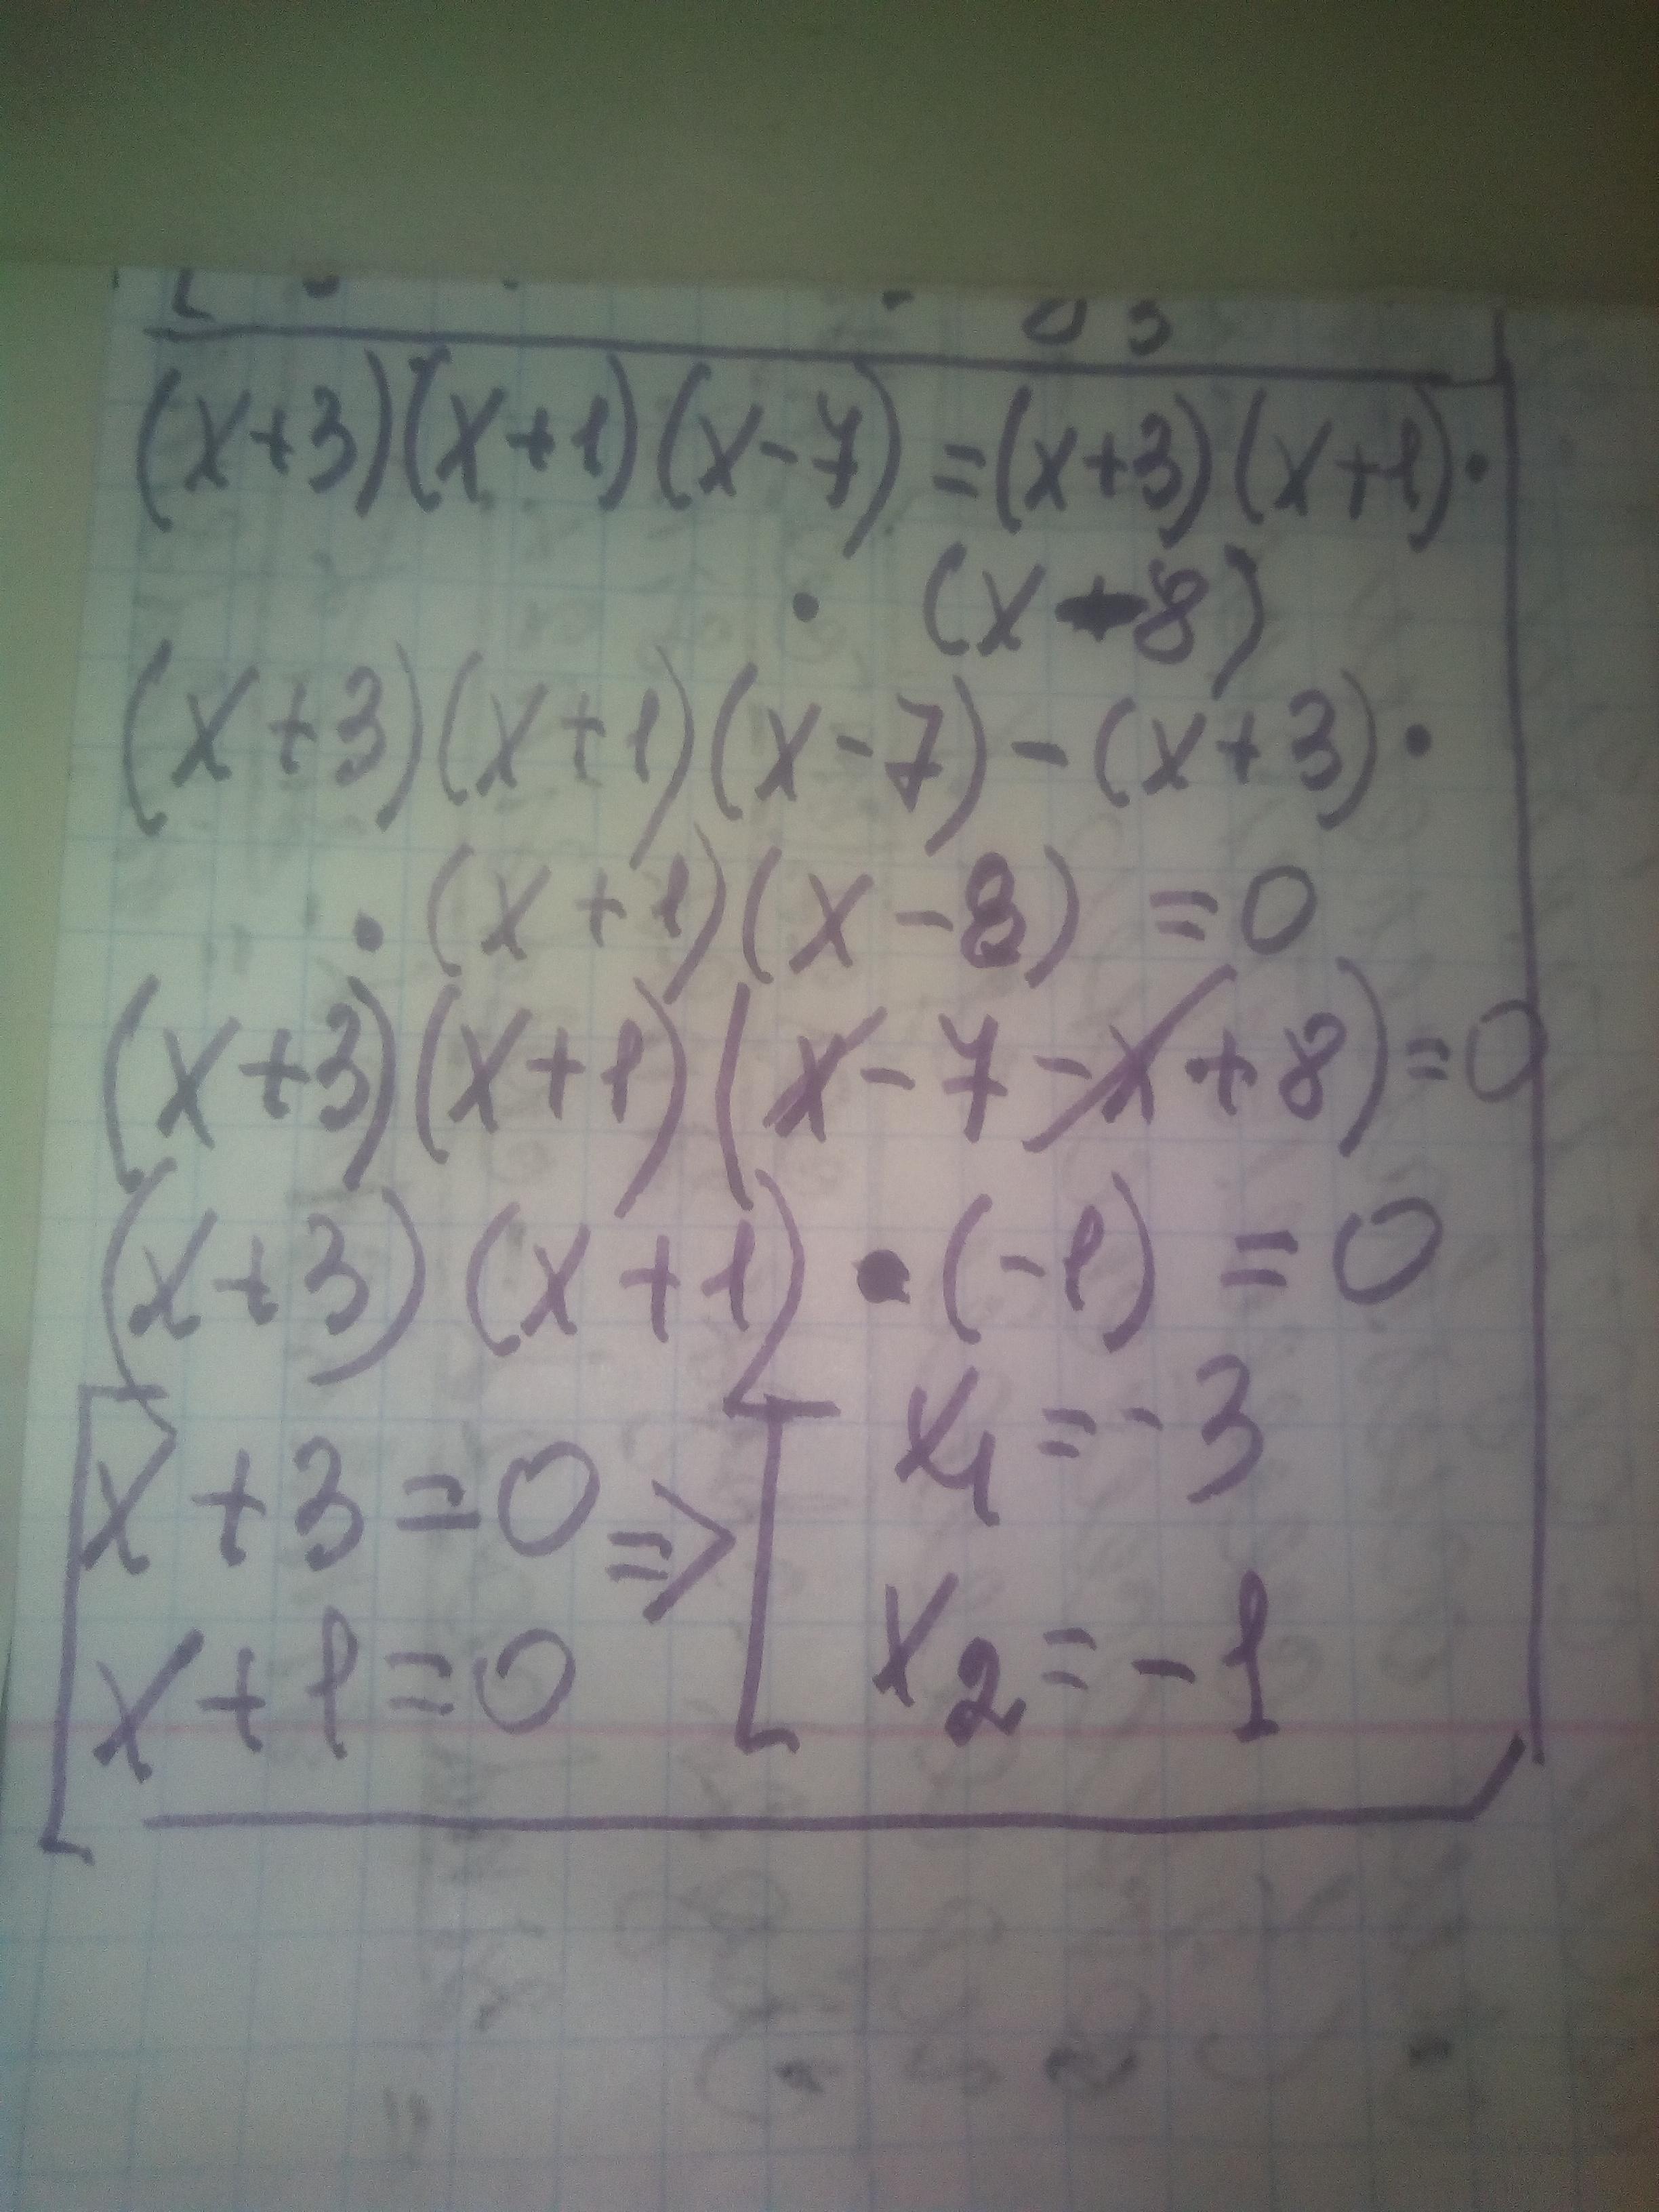 (x+3)(x+1)(x-7)=(x+3)(x+1)·
· (x-8)
(x+3)(x+1)(x-7)-(x+3)·
·(x+1)(x-8)=0
(x+3)(x+1)(x-7-x+8)=0
(x+3)(x+1)·(-1)=0
[x+3=0 => [x₁=-3
x+1=0 x₂=-1